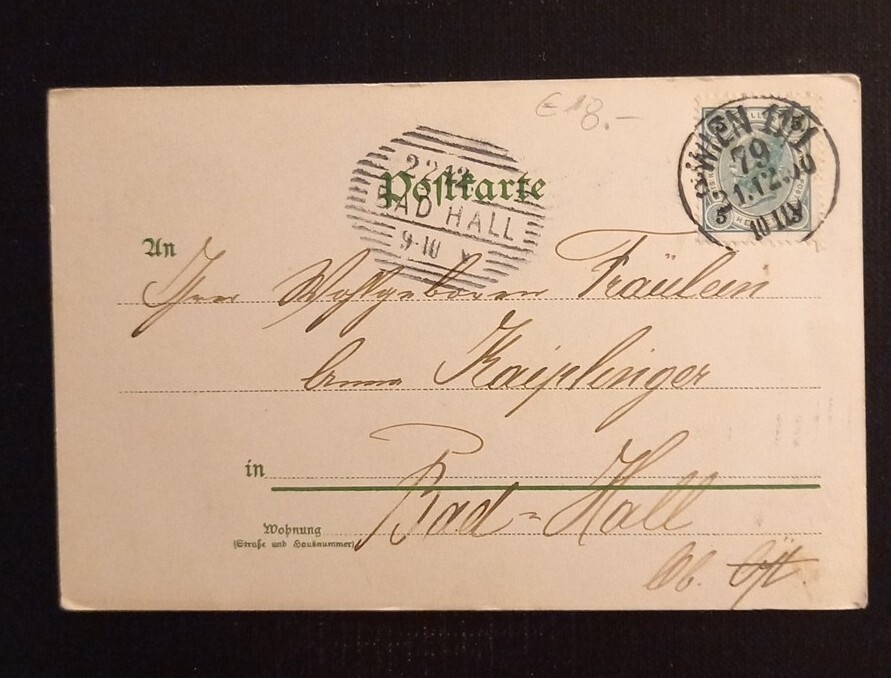 € 18.-
Postkarte
22 12
BAD HALL
9-10
WIEN 1/1
79
5
An
Ihrer Wohlgeboren Fräulein
Anna Kaiplinger
in
Bad-Hall
Wohnung
(Straße und Hausnummer)
Ob. Öst.